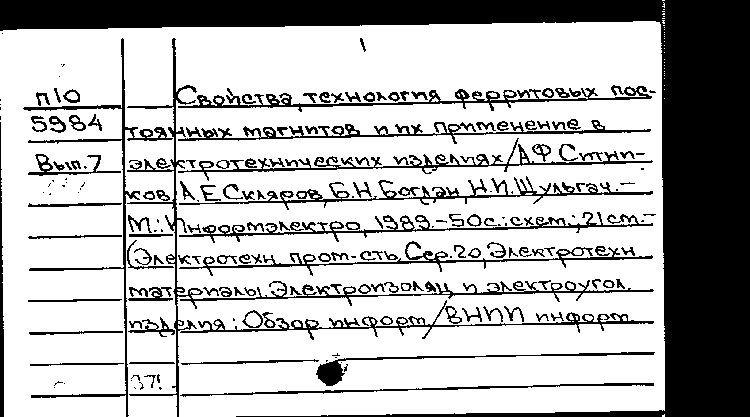 1
П10 Свойства, технология ферритовых пос-
5984 тоянных магнитов и их применение в
Вып.7 электротехнических изделиях/А.Ф. Ситни-
ков, А.Е. Скляров, Б.Н. Богдан, Н.И. Шульгач.-
М.: Информэлектро, 1989.-50с.: схем.; 21см.-
(Электротехн. пром-сть. Сер.20, Электротехн.
материалы. Электроизоляц. и электроугол.
изделия: Обзор. информ./ВНИИ информ.